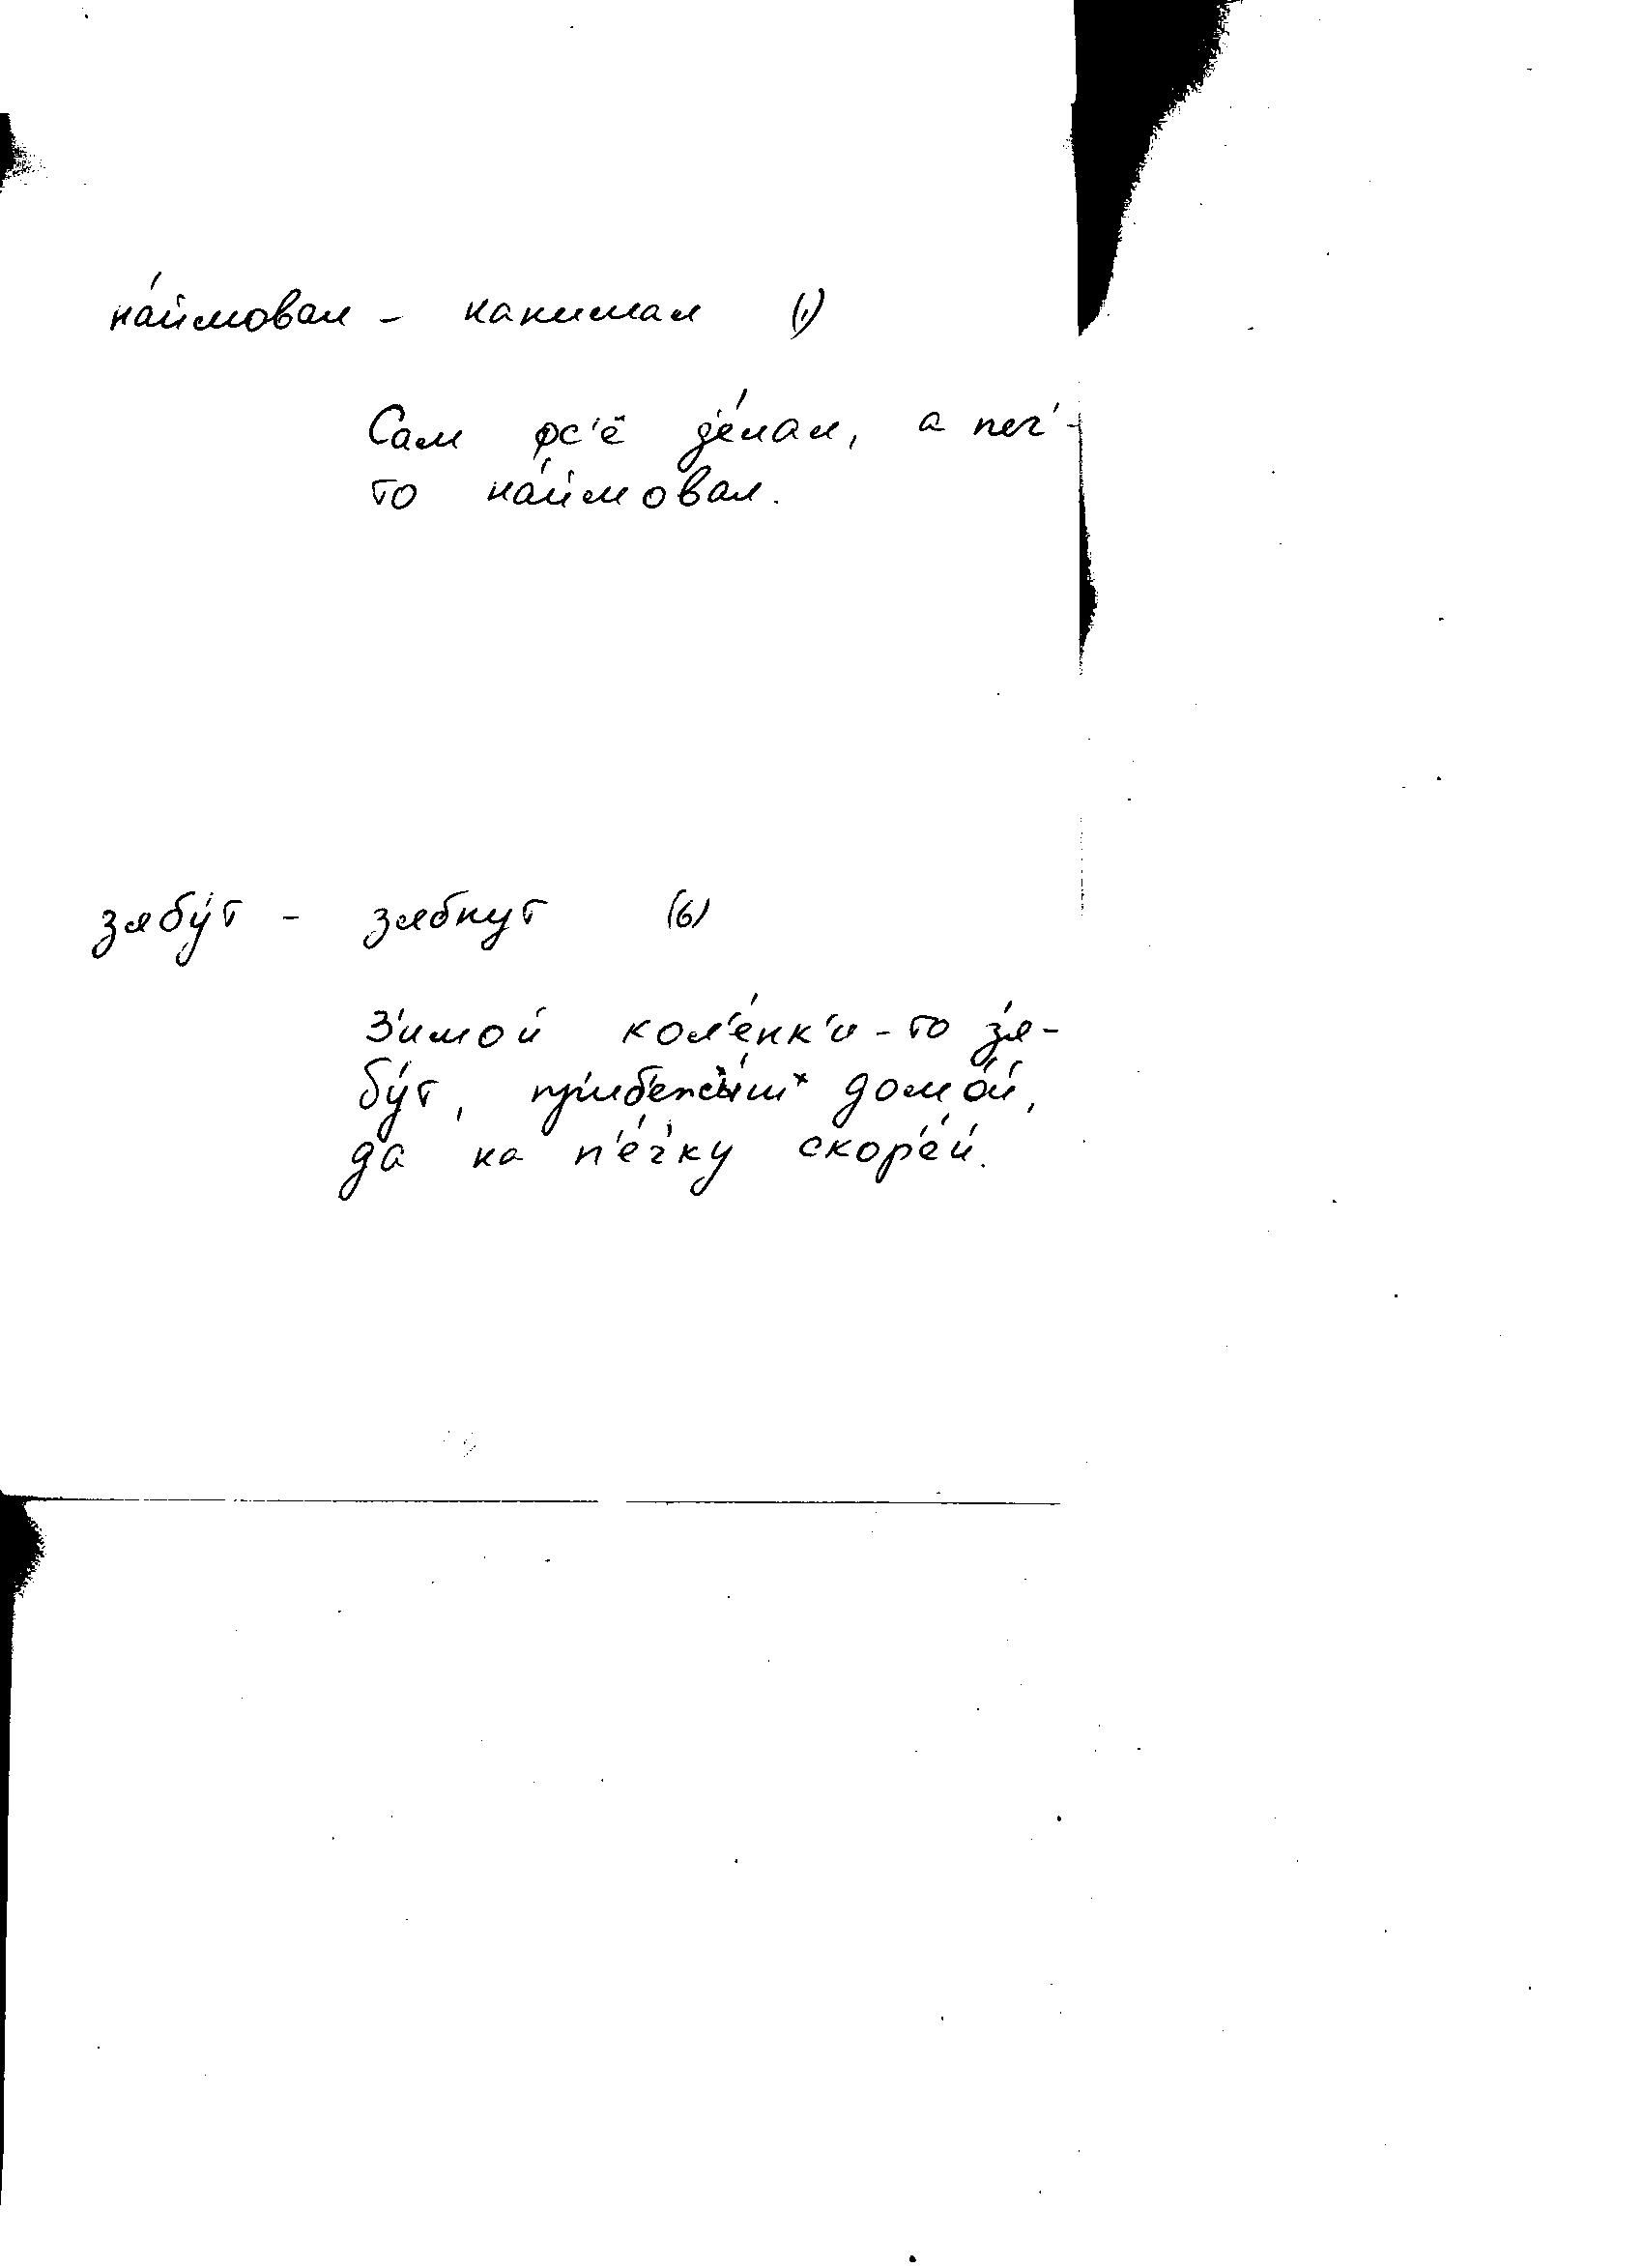 на́ймовал - нанимал (1)
Сам фс'ё де́лал, а печ'-
то на́ймовал.
зябу́т - зябнут (6)
З'имой кол'е́нк'и-то з'я-
бу́т, пр'иб'ежы́ш домо́й,
да на п'е́ч'ку скор'е́й.